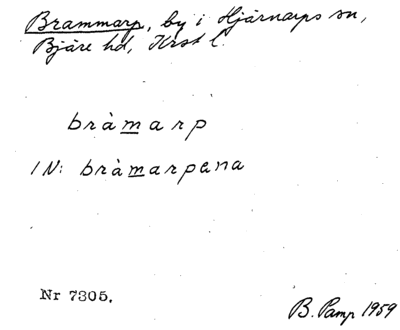 Brammarp, by i Hjärnarps sn,
Bjäre hd, Krst l.
bràmarp
IN: bràmarpana
Nr 7305.
B. Pamp 1959